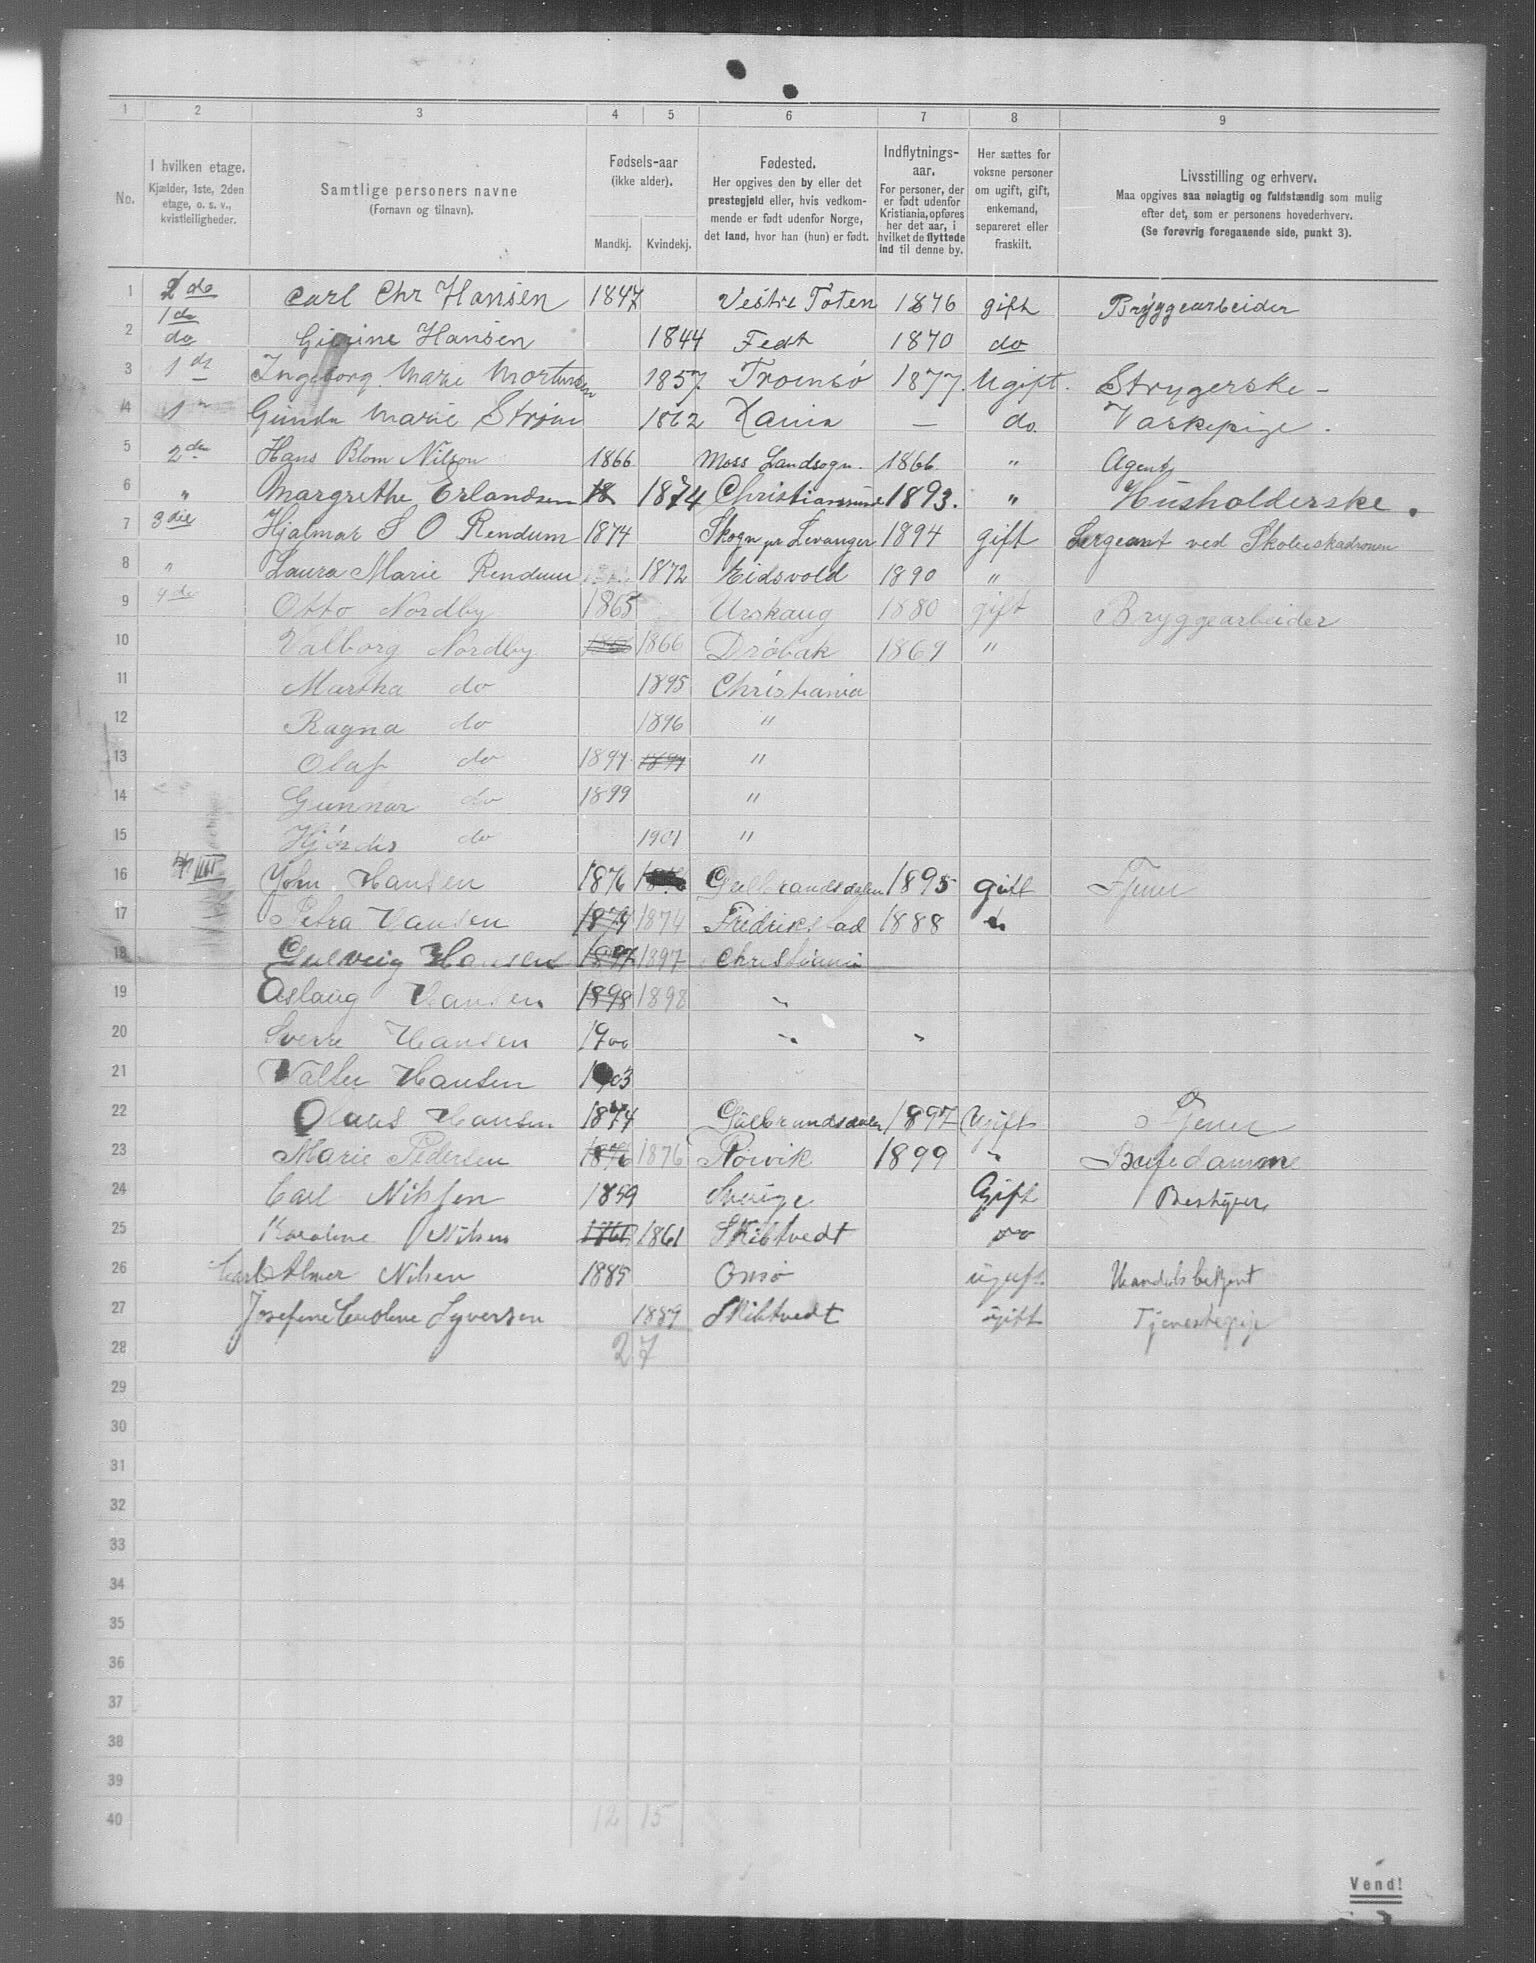 1 2 3 4 5 6 7 8 9
No.
I hvilken etage.
Kjælder, 1ste, 2den
etage, o. s. v.,
kvistleiligheder.
Samtlige personers navne
(Fornavn og tilnavn).
Fødsels-aar
(ikke alder).
Mandkj. Kvindekj.
Fødested.
Her opgives den by eller det
prestegjeld eller, hvis vedkom-
mende er født udenfor Norge,
det land, hvor han (hun) er født.
Indflytnings-
aar.
For personer, der
er født udenfor
Kristiania, opføres
her det aar, i
hvilket de flyttede
ind til denne by.
Her sættes for
voksne personer
om ugift, gift,
enkemand,
separeret eller
fraskilt.
Livsstilling og erhverv.
Maa opgives saa nøiagtig og fuldstændig som mulig
efter det, som er personens hovederhverv.
(Se forøvrig foregaaende side, punkt 3).
1 Carl Chr Hansen 1847 Vestre Toten 1876 gift Bryggearbeider
2 do Hansen 1844 Fedt 1870 do
3 Ingeborg Marie Mortensen 1857 Tromsø 1877. Ugift. Strygerske –
4 Gunda Marie Strøm 1862 Xania — do. Vaskepige.
5 2den Hans Blom Nilson 1866 Moss Landsogn. 1866 " Agent
6 " Margrethe Erlandsen 18 1874 Christianssund 1893. " Husholderske.
7 3die Hjalmar S O Rendum 1874 Skogn pr Levanger 1894 gift Sergeant ved Skoleeskadronen
8 " Laura Marie Rendum 1872 Eidsvold 1890 "
9 4de Otto Nordby 1865 Urskaug 1880 gift Bryggearbeider
10 Valborg Nordby 1866 1866 Drøbak 1869 "
11 Martha do 1895 Christiania
12 Ragna do 1896 "
13 Olaf do 1897 1897 "
14 Gunnar do 1899 "
15 Hjørdis do 1901 "
16 John Hansen 1876 Gulbrandsdalen 1895 gift Tjener
17 Petra Hansen 1874 1874 Fredrikstad 1888 "
18 Hansen 1897 1897 Christiania
19 Aslaug Hansen 1898 1898 "
20 Sverre Hansen 1900 " "
21 Valter Hansen 1903
22 Hansen 1874 Gulbrandsdalen 1897 Ugift Tjener
23 Marie Pedersen 1876 1876 Rørvik 1899 " Bufedamme
24 Carl Nilsen 1859 Sverige Gift Bestyrer
25 Karoline Nilsen 1861 1861 Skibtvedt do
26 Carl Almer Nilsen 1885 Onsø ugift Handelsbetjent
27 Josefine Caroline Syversen 1889 Skibtvedt ugift Tjenestepige
28 27
29
30
31
32
33
34
35
36
37
38
39
40 12 15
Vend!